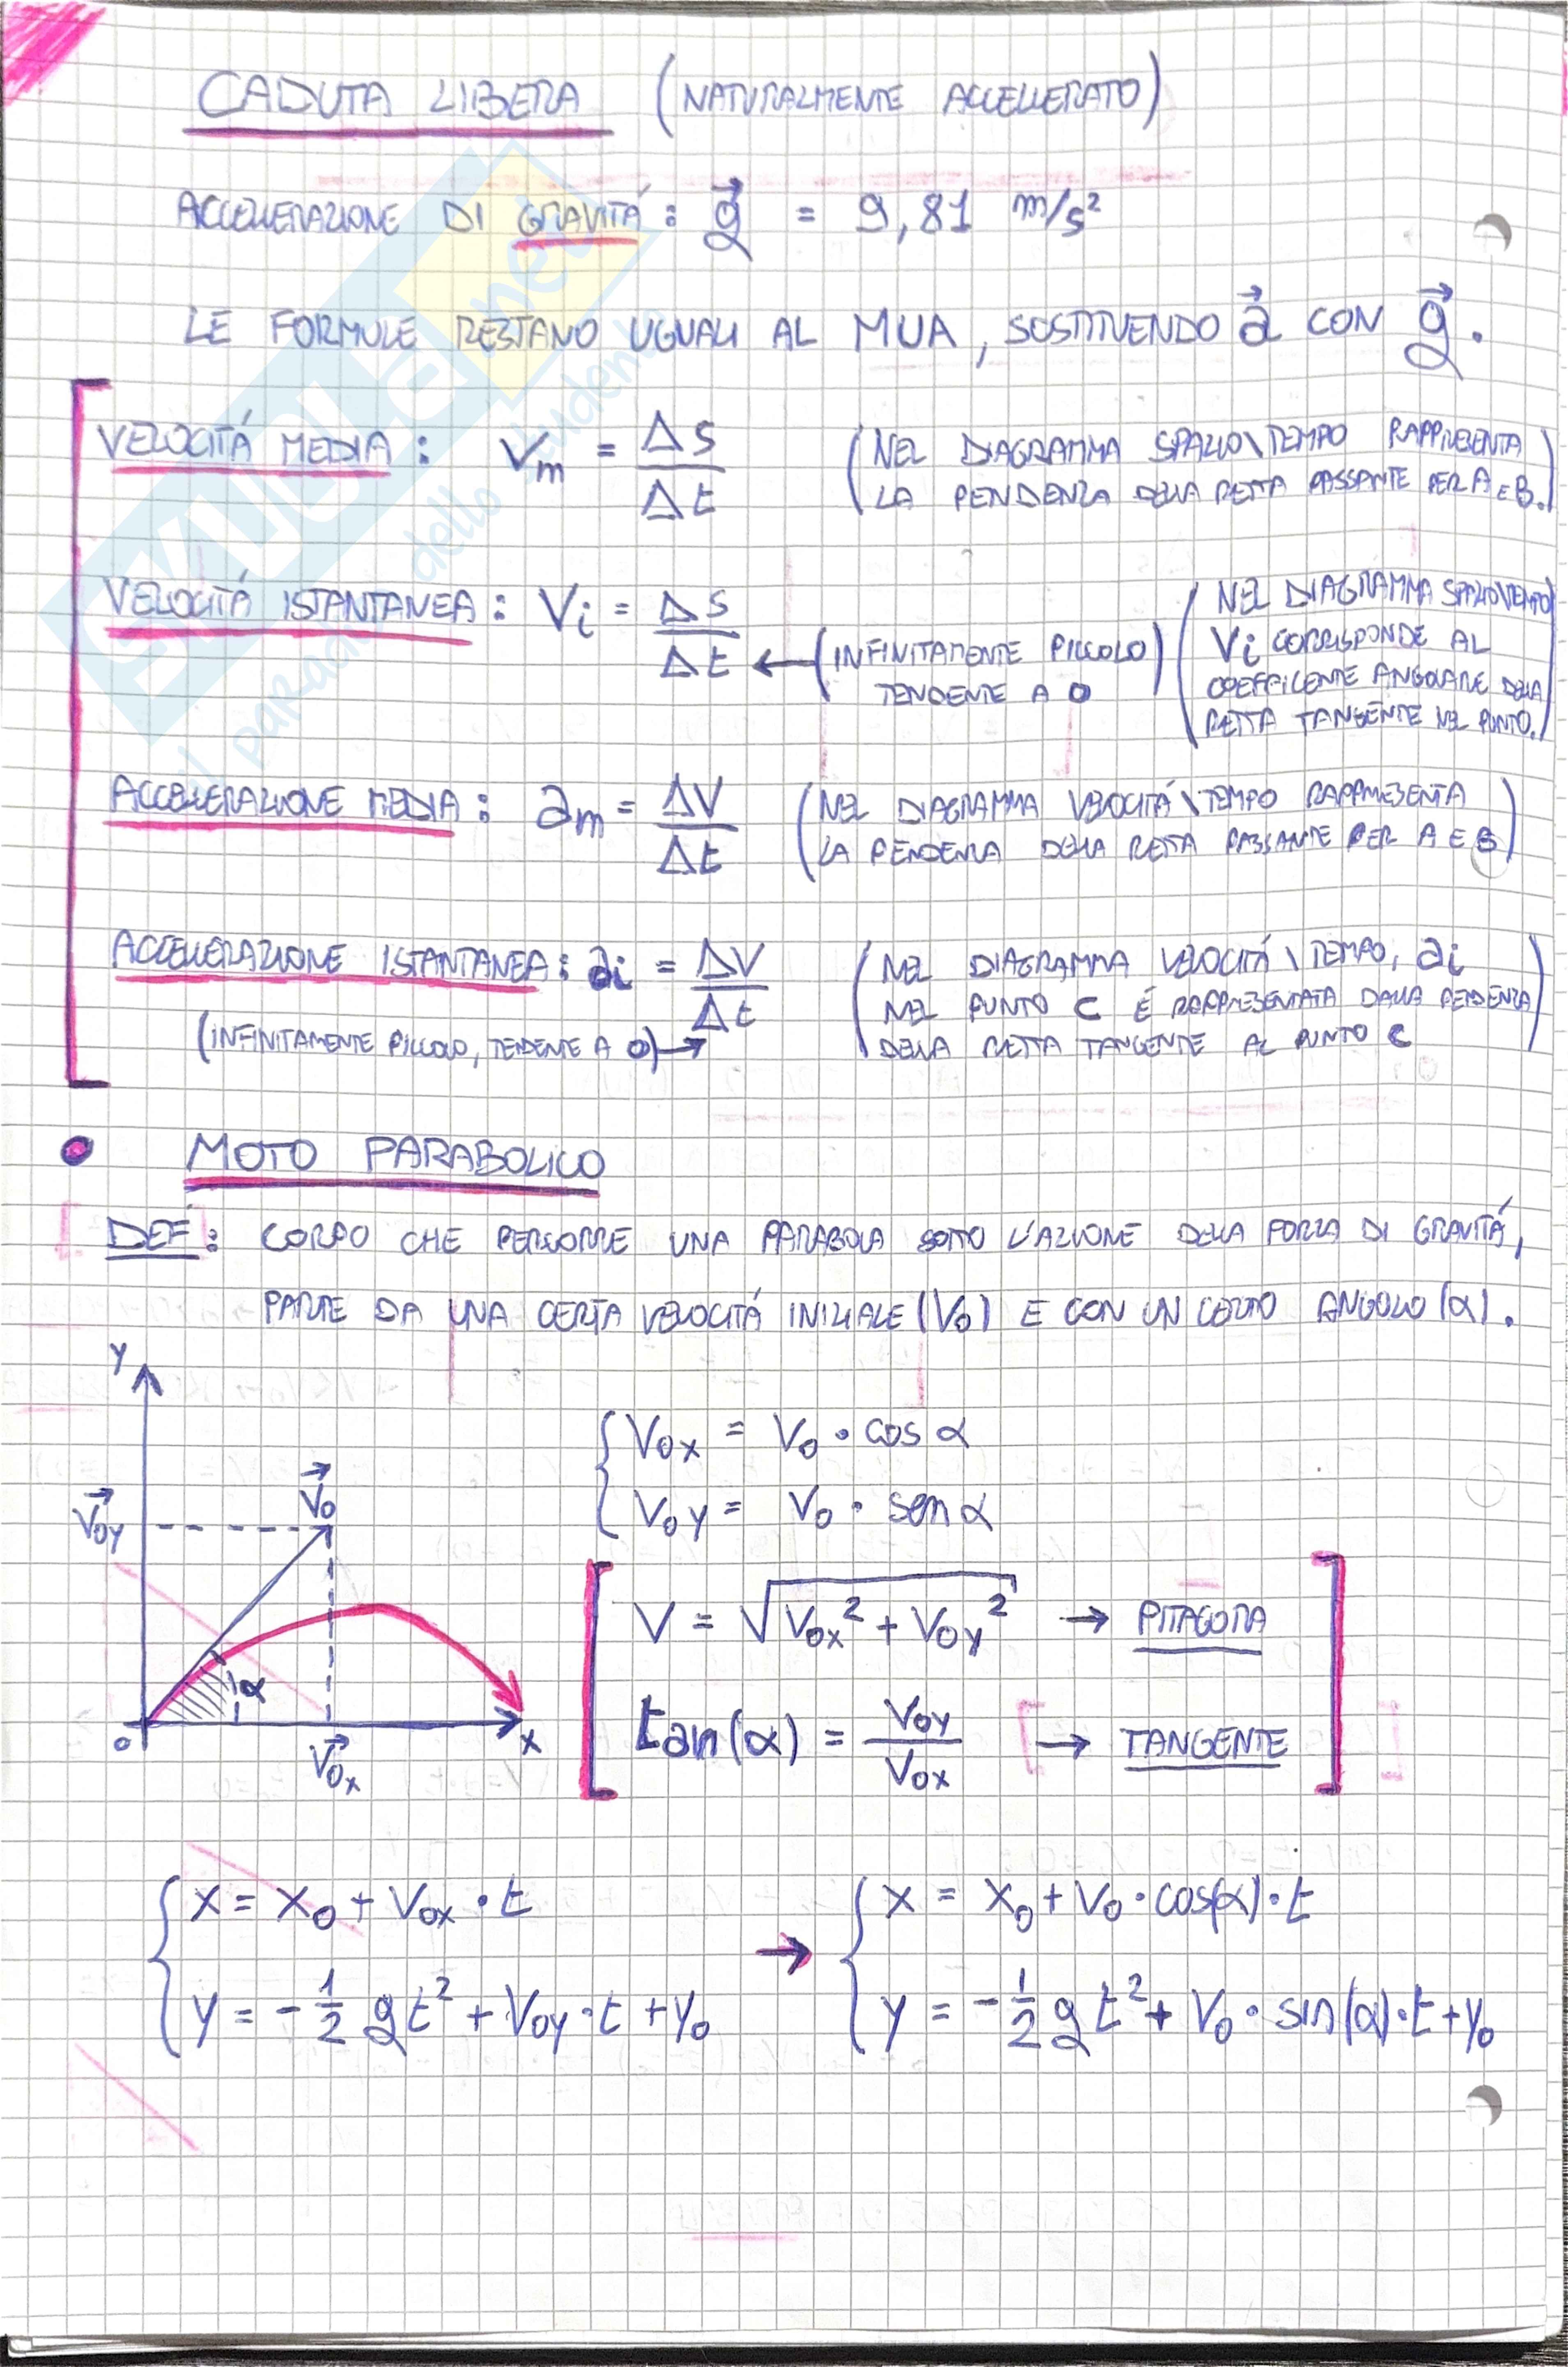 CADUTA LIBERA (NATURALMENTE ACCELLERATO)
ACCELLERAZIONE DI GRAVITÁ : g⃗ = 9,81 m/s²
LE FORMULE RESTANO UGUALI AL MUA, SOSTITUENDO a⃗ CON g⃗.
VELOCITÁ MEDIA : Vm = ΔS/Δt (NEL DIAGRAMMA SPAZIO\TEMPO RAPPRESENTA
LA PENDENZA DELLA RETTA PASSANTE PER A E B.)
VELOCITÁ ISTANTANEA : Vi = ΔS/Δt ← (INFINITAMENTE PICCOLO
TENDENTE A 0)
(NEL DIAGRAMMA SPAZIO\TEMPO
Vi CORRISPONDE AL
COEFFICENTE ANGOLARE DELLA
RETTA TANGENTE NEL PUNTO.)
ACCELLERAZIONE MEDIA : am = ΔV/Δt (NEL DIAGRAMMA VELOCITÁ\TEMPO RAPPRESENTA
LA PENDENZA DELLA RETTA PASSANTE PER A E B)
ACCELLERAZIONE ISTANTANEA : ai = ΔV/Δt (NEL DIAGRAMMA VELOCITÁ\TEMPO, ai
NEL PUNTO C É RAPPRESENTATA DALLA PENDENZA
DELLA RETTA TANGENTE AL PUNTO C)
(INFINITAMENTE PICCOLO, TENDENTE A 0) →
MOTO PARABOLICO
DEF : CORPO CHE PERCORRE UNA PARABOLA SOTTO L'AZIONE DELLA FORZA DI GRAVITÁ,
PARTE DA UNA CERTA VELOCITÁ INIZIALE (V₀) E CON UN CERTO ANGOLO (α).
Y
V⃗₀
V⃗₀y
α
0
V⃗₀x
X
{ V₀x = V₀ · cos α
V₀y = V₀ · sen α
V = √(V₀x² + V₀y²) → PITAGORA
tan(α) = V₀y/V₀x → TANGENTE
{ X = X₀ + V₀x · t
Y = -½ g t² + V₀y · t + Y₀
→ { X = X₀ + V₀ · cos(α) · t
Y = -½ g t² + V₀ · sin(α) · t + Y₀
skuola.net
il paradiso dello studente